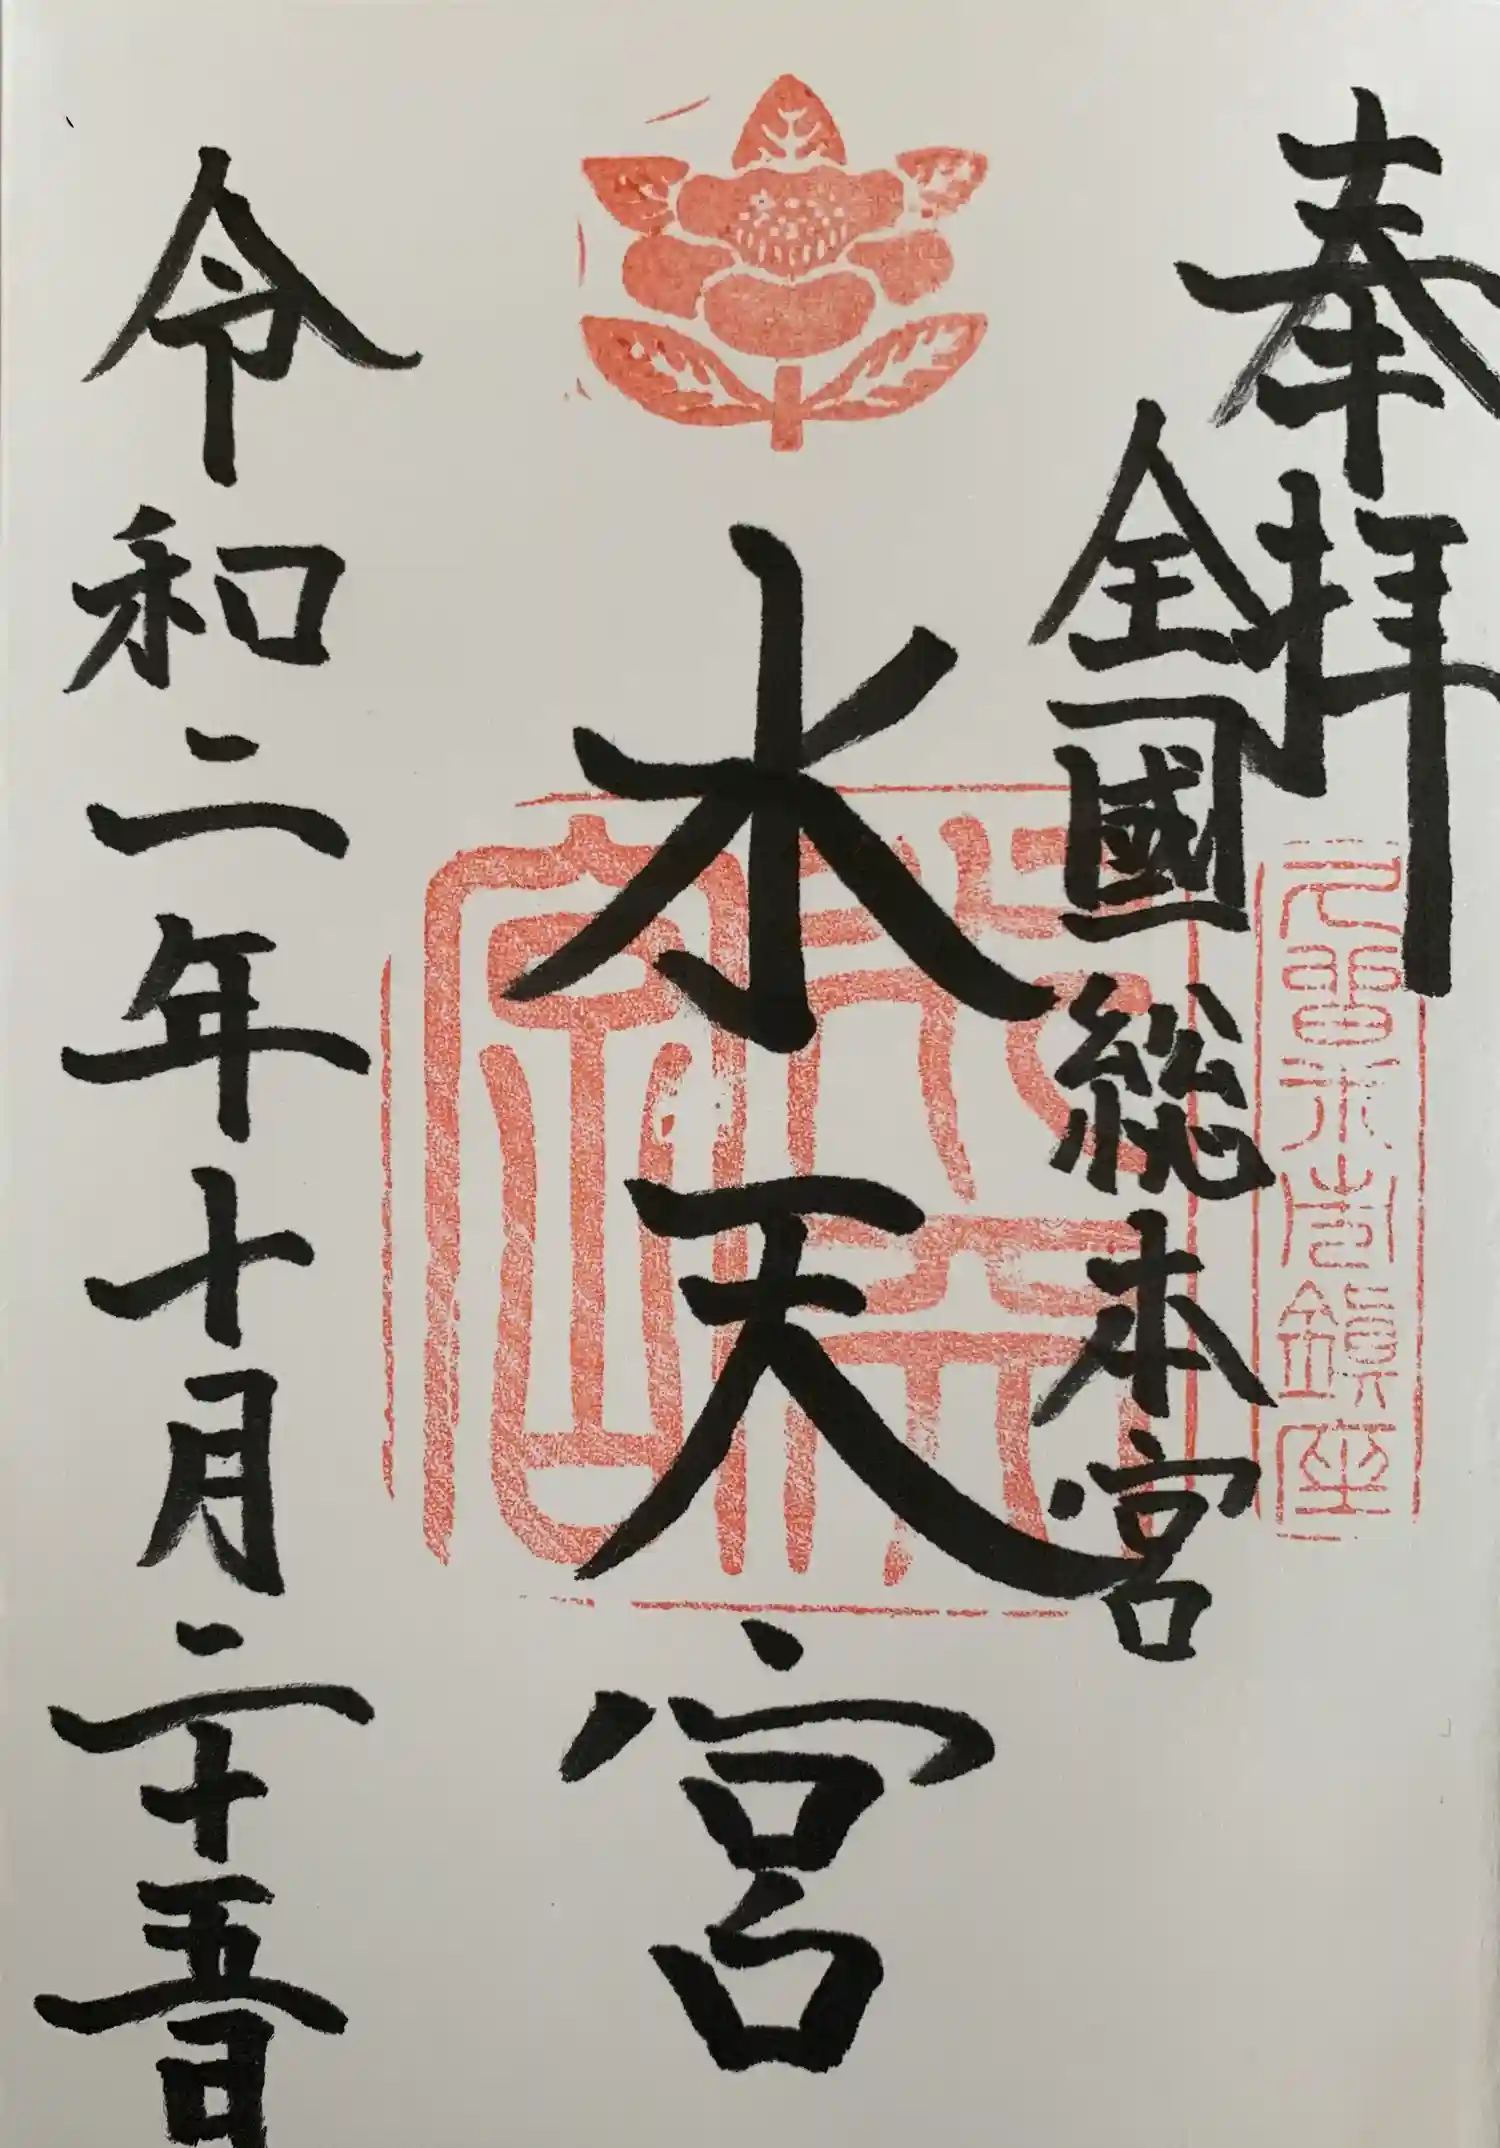 奉拝
全國総本宮
水天宮
令和二年十月二十五日